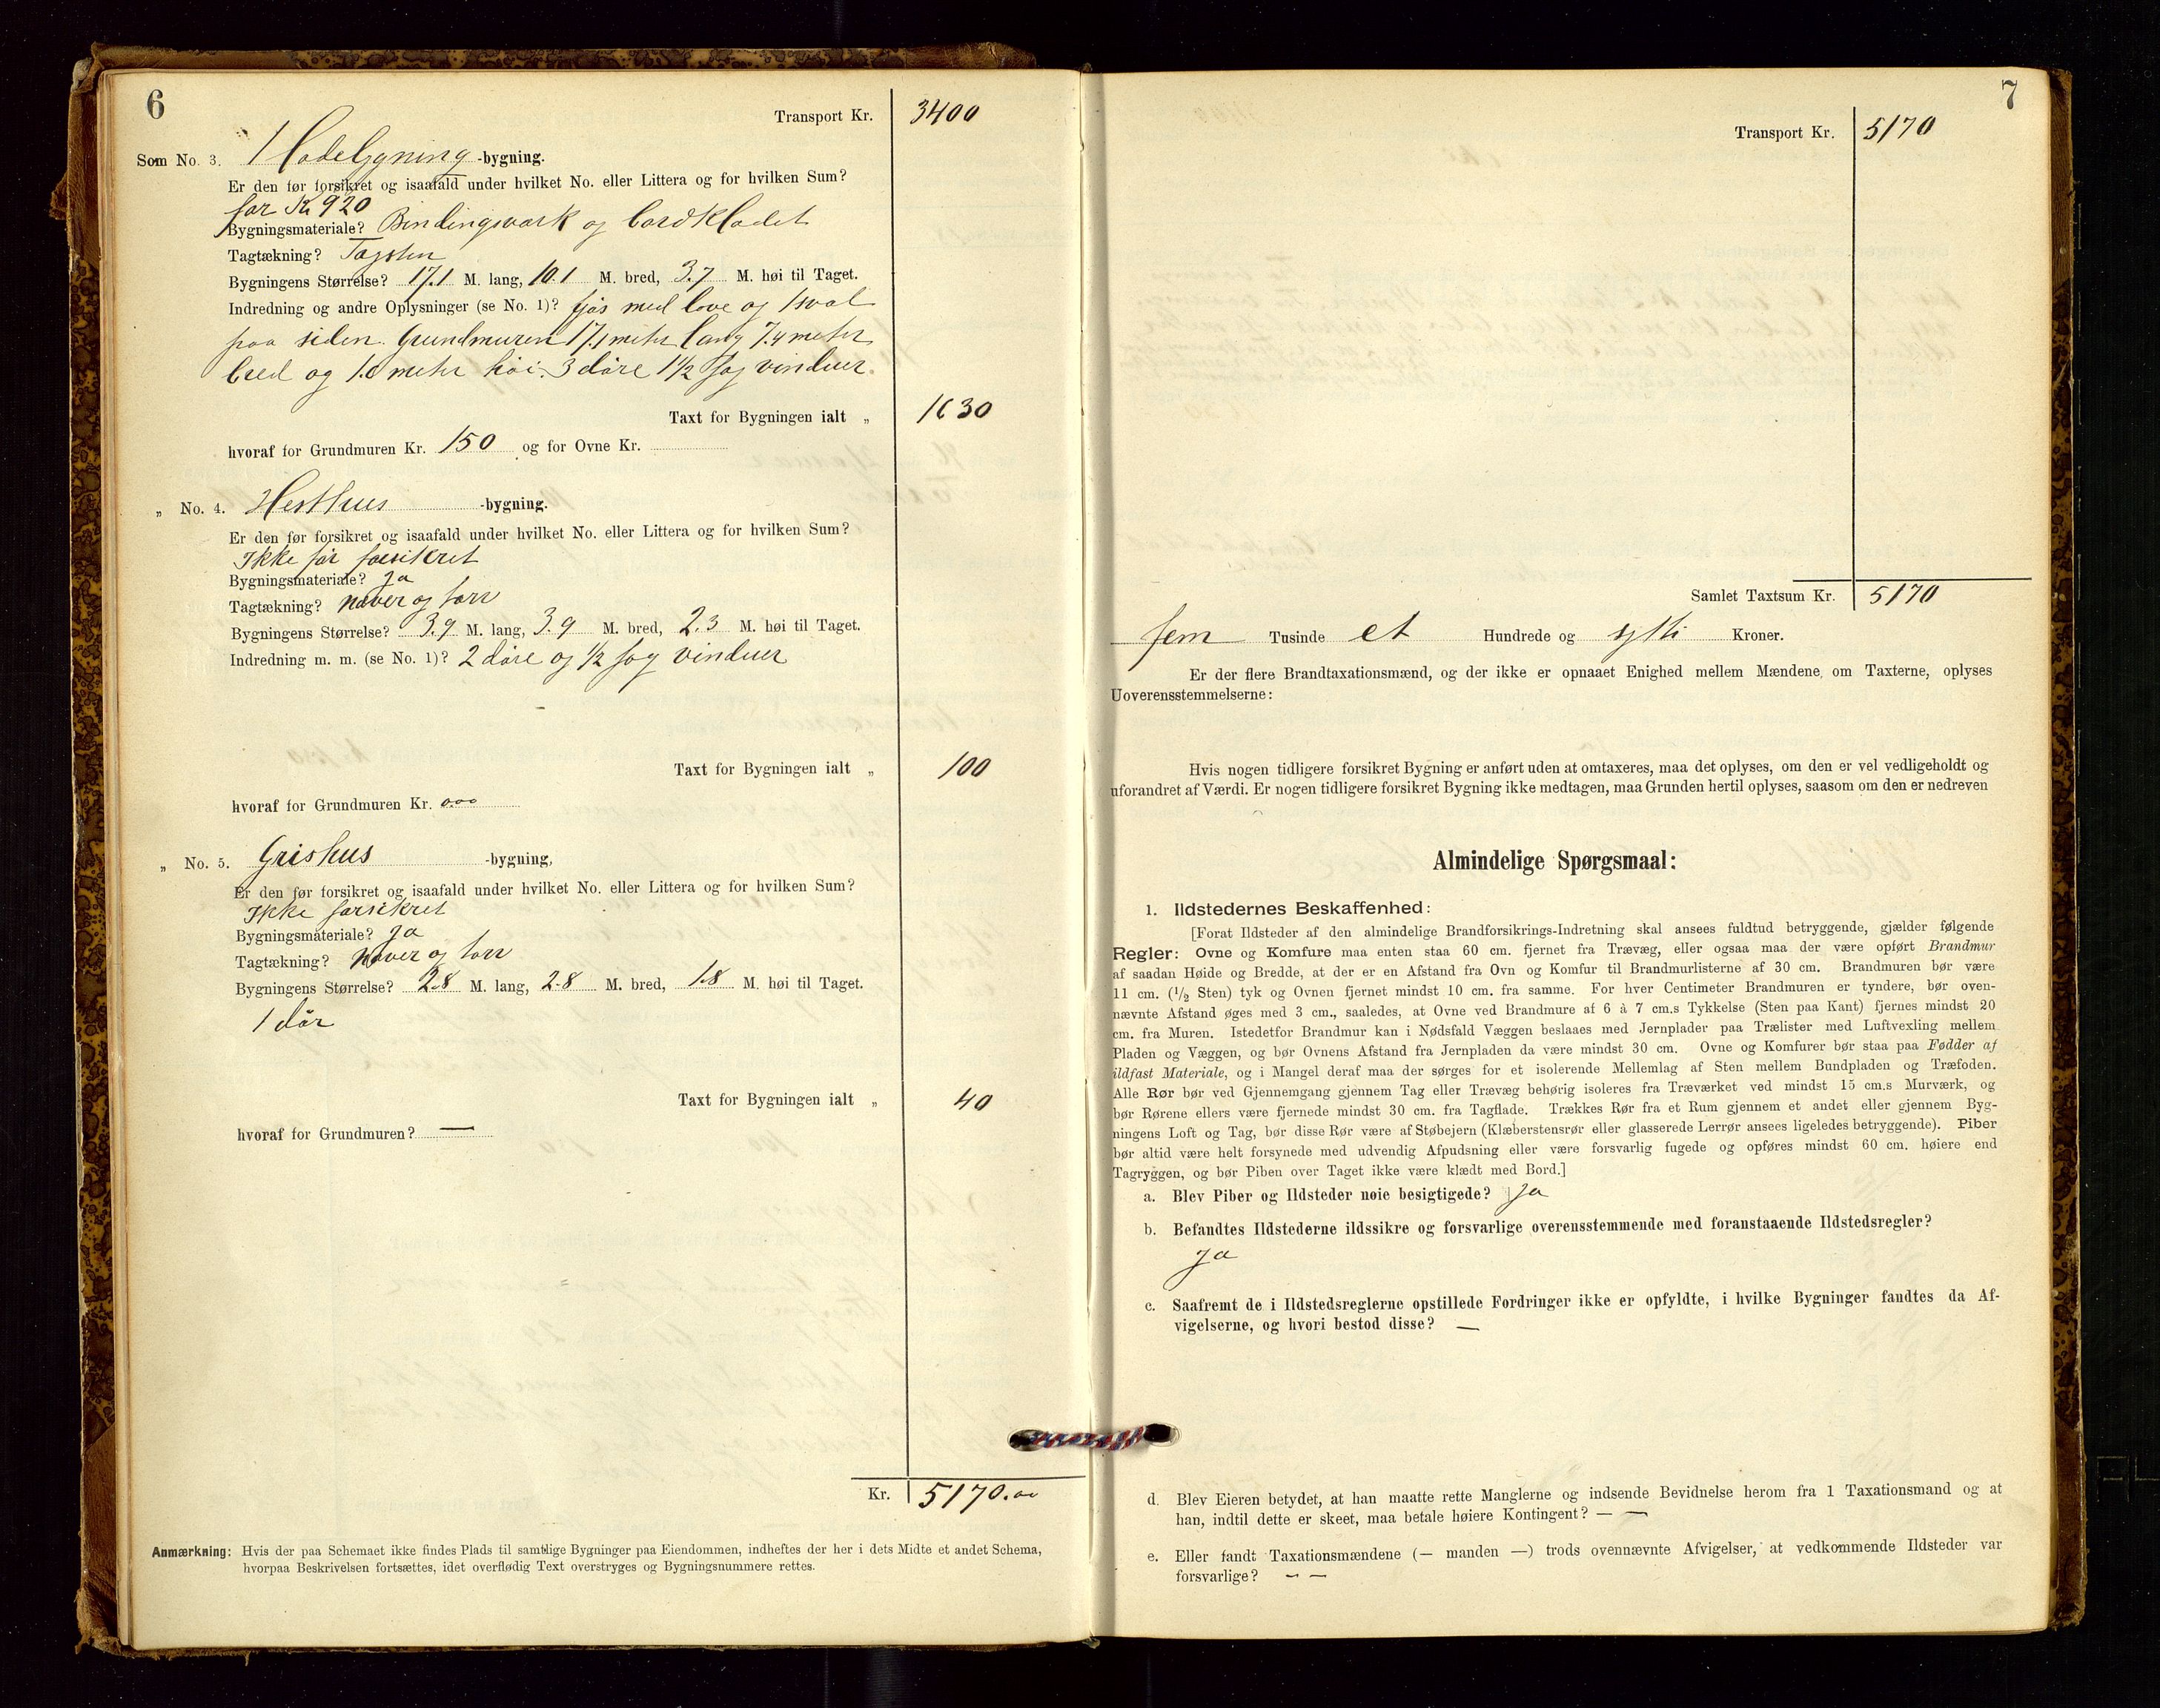 6
Transport Kr. 3400
Som No. 3. 1 Ladebygning -bygning.
Er den før forsikret og isaafald under hvilket No. eller Littera og for hvilken Sum?
for Kr 920
Bygningsmateriale? Bindingsværk og bordklædet
Tagtækning? Tagsten
Bygningens Størrelse? 17.1 M. lang, 10.1 M. bred, 3.7 M. høi til Taget.
Indredning og andre Oplysninger (se No. 1)? fjøs med love og 1 sval
paa siden. Grundmuren 17.1 meter lang 7.4 meter
bred og meter høi. 3 døre 1½ fag vinduer.
Taxt for Bygningen ialt „ 1630
hvoraf for Grundmuren Kr. 150 og for Ovne Kr.
„ No. 4. Hesthus -bygning.
Er den før forsikret og isaafald under hvilket No. eller Littera og for hvilken Sum?
Ikke før forsikret
Bygningsmateriale? Ja
Tagtækning? næver og torv
Bygningens Størrelse? 3.9 M. lang, 3.9 M. bred, 2.3 M. høi til Taget.
Indredning m. m. (se No. 1)? 2 døre og ½ fag vinduer
Taxt for Bygningen ialt „ 100
hvoraf for Grundmuren Kr. 0.00
„ No. 5. Grishus -bygning,
Er den før forsikret og isaafald under hvilket No. eller Littera og for hvilken Sum?
Ikke forsikret
Bygningsmateriale? Ja
Tagtækning? Næver og torv
Bygningens Størrelse? 2.8 M. lang, 2.8 M. bred, 1.8 M. høi til Taget.
1 dør
Taxt for Bygningen ialt „ 40
hvoraf for Grundmuren? —
Kr. 5170.00
Anmærkning: Hvis der paa Schemaet ikke findes Plads til samtlige Bygninger paa Eiendommen, indheftes der her i dets Midte et andet Schema,
hvorpaa Beskrivelsen fortsættes, idet overflødig Text overstryges og Bygningsnummere rettes.
7
Transport Kr. 5170
Samlet Taxtsum Kr. 5170
fem Tusinde et Hundrede og sytti Kroner.
Er der flere Brandtaxationsmænd, og der ikke er opnaaet Enighed mellem Mændene om Taxterne, oplyses
Uoverensstemmelserne:
Hvis nogen tidligere forsikret Bygning er anført uden at omtaxeres, maa det oplyses, om den er vel vedligeholdt og
uforandret af Værdi. Er nogen tidligere forsikret Bygning ikke medtagen, maa Grunden hertil oplyses, saasom om den er nedreven
Almindelige Spørgsmaal:
1. Ildstedernes Beskaffenhed:
[Forat Ildsteder af den almindelige Brandforsikrings-Indretning skal ansees fuldtud betryggende, gjælder følgende
Regler: Ovne og Komfure maa enten staa 60 cm. fjernet fra Trævæg, eller ogsaa maa der være opført Brandmur
af saadan Høide og Bredde, at der er en Afstand fra Ovn og Komfur til Brandmurlisterne af 30 cm. Brandmuren bør være
11 cm. (1/2 Sten) tyk og Ovnen fjernet mindst 10 cm. fra samme. For hver Centimeter Brandmuren er tyndere, bør oven-
nævnte Afstand øges med 3 cm., saaledes, at Ovne ved Brandmure af 6 à 7 cm.s Tykkelse (Sten paa Kant) fjernes mindst 20
cm. fra Muren. Istedetfor Brandmur kan i Nødsfald Væggen beslaaes med Jernplader paa Trælister med Luftvexling mellem
Pladen og Væggen, og bør Ovnens Afstand fra Jernpladen da være mindst 30 cm. Ovne og Komfurer bør staa paa Fødder af
ildfast Materiale, og i Mangel deraf maa der sørges for et isolerende Mellemlag af Sten mellem Bundpladen og Træfoden.
Alle Rør bør ved Gjennemgang gjennem Tag eller Trævæg behørig isoleres fra Træværket ved mindst 15 cm.s Murværk, og
bør Rørene ellers være fjernede mindst 30 cm. fra Tagflade. Trækkes Rør fra et Rum gjennem et andet eller gjennem Byg-
ningens Loft og Tag, bør disse Rør være af Støbejern (Klæberstensrør eller glasserede Lerrør ansees ligeledes betryggende). Piber
bør altid være helt forsynede med udvendig Afpudsning eller være forsvarlig fugede og opføres mindst 60 cm. høiere end
Tagryggen, og bør Piben over Taget ikke være klædt med Bord.]
a. Blev Piber og Ildsteder nøie besigtigede? Ja
b. Befandtes Ildstederne ildssikre og forsvarlige overensstemmende med foranstaaende Ildstedsregler?
Ja
c. Saafremt de i Ildstedsreglerne opstillede Fordringer ikke er opfyldte, i hvilke Bygninger fandtes da Af-
vigelserne, og hvori bestod disse? —
d. Blev Eieren betydet, at han maatte rette Manglerne og indsende Bevidnelse herom fra 1 Taxationsmand og at
han, indtil dette er skeet, maa betale høiere Kontingent? — —
e. Eller fandt Taxationsmændene (— manden —) trods ovennævnte Afvigelser, at vedkommende Ildsteder var
forsvarlige? — —